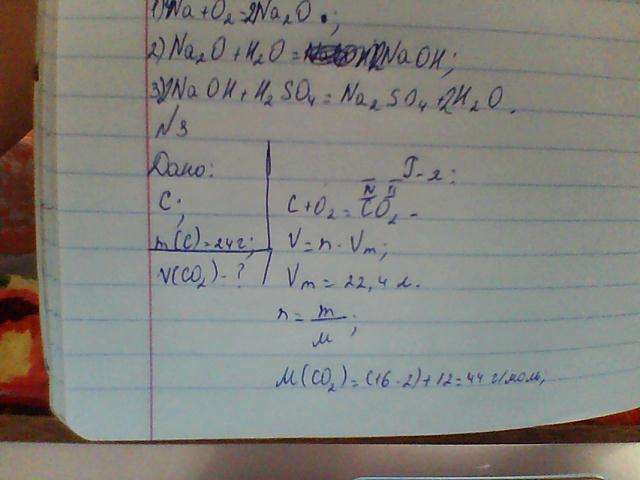 1) Na + O2 = 2Na2O.;
2) Na2O + H2O = 2NaOH;
3) 2NaOH + H2SO4 = Na2SO4 + 2H2O.
N3
Дано:
C;
m(C) = 24г;
V(CO2) - ?
Р-е:
IV II
C + O2 = CO2 -
V = n · Vm;
Vm = 22,4 л.
n = m/M;
M(CO2) = (16 · 2) + 12 = 44 г/моль;